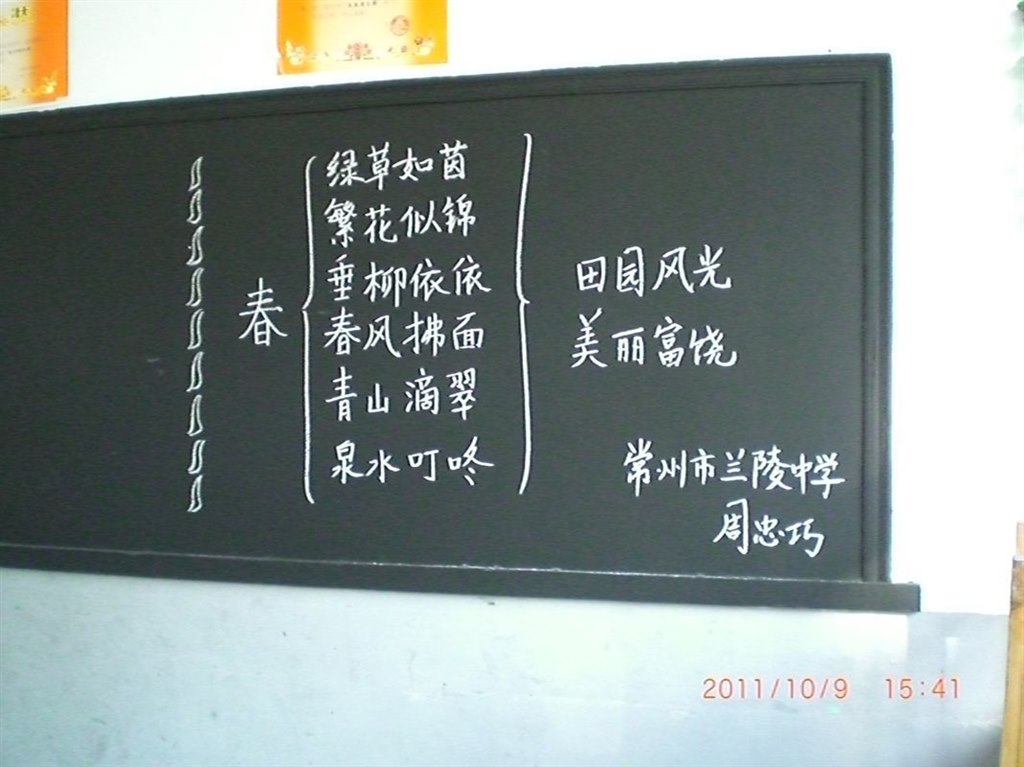 春
绿草如茵
繁花似锦
垂柳依依
春风拂面
青山滴翠
泉水叮咚
田园风光
美丽富饶
常州市兰陵中学
周忠巧
2011/10/9 15:41